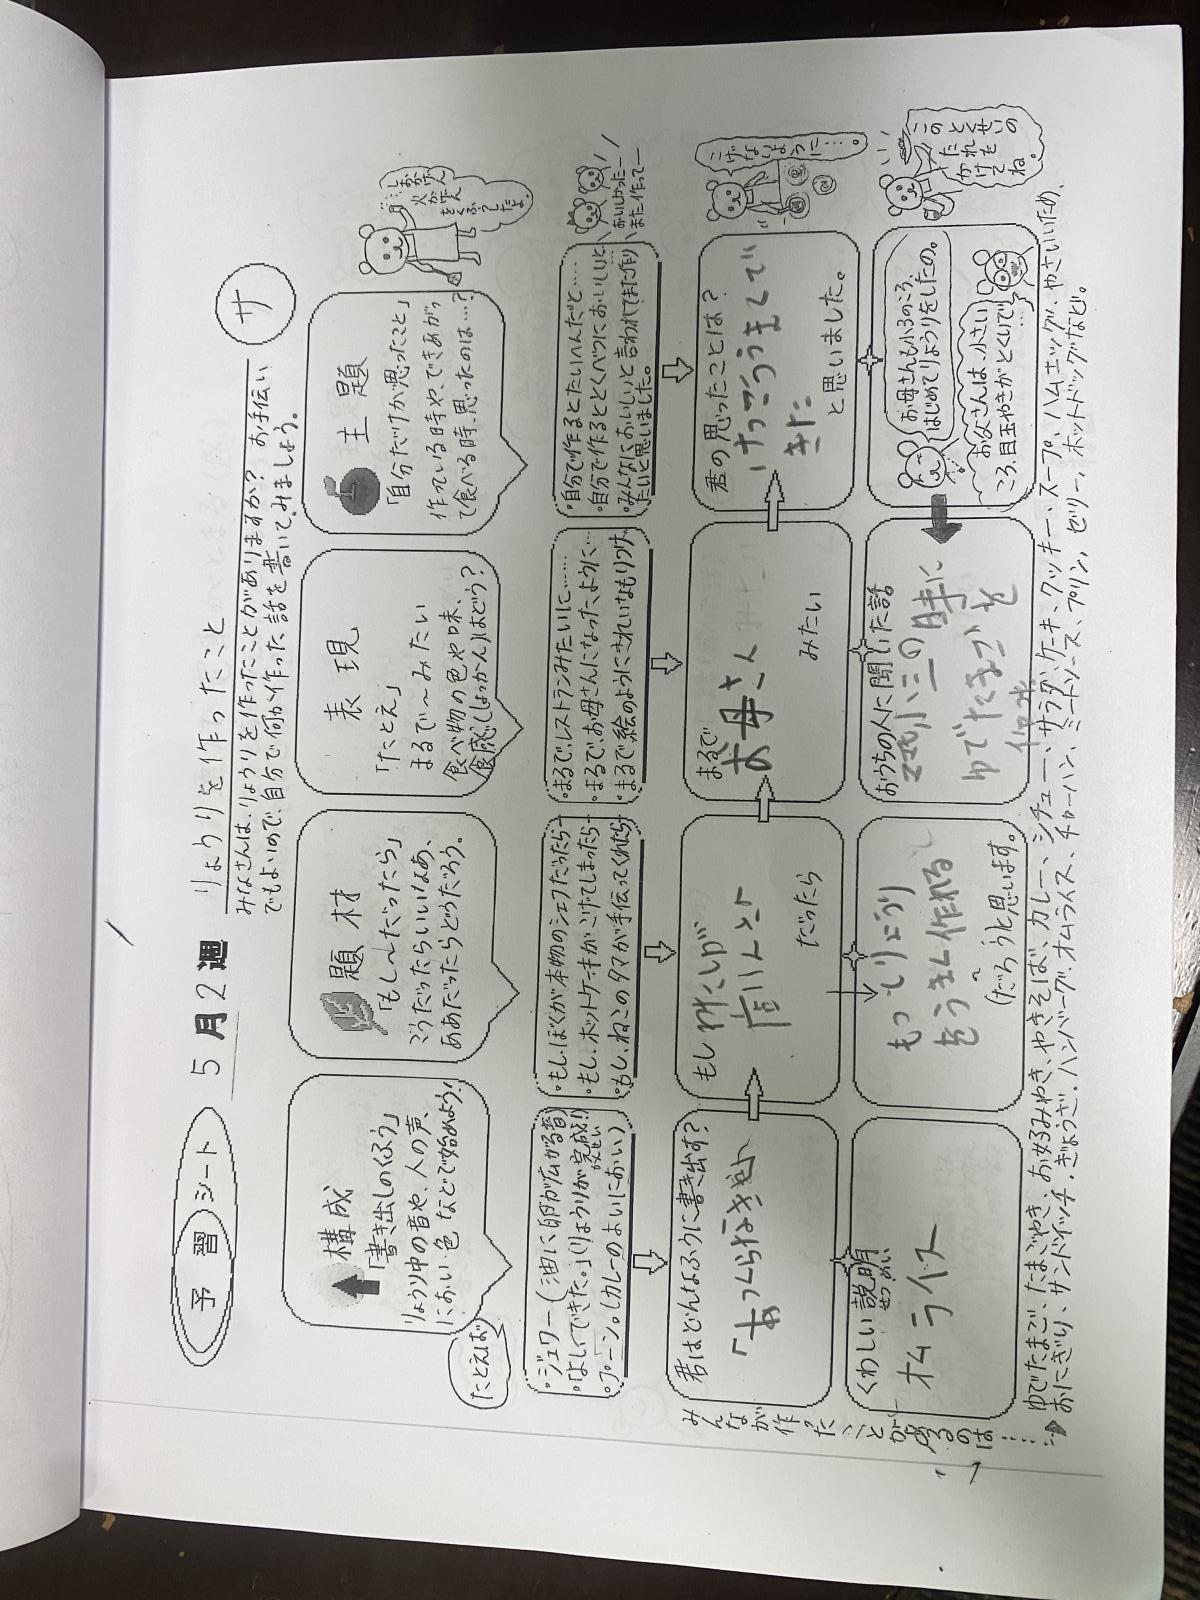 予習シート 5月2週 りょうりを作ったこと
サ
みなさんは、りょうりを作ったことがありますか? お手伝い
でもよいので、自分で何か作った話を書いてみましょう。
構成
「書き出しのくふう」
りょうり中の音や、人の声、
におい、色などで始めよう!
たとえば
題材
「もし〜だったら」
こうだったらいいなあ、
ああだったらどうだろう。
表現
「たとえ」
まるで〜みたい
食べ物の色や味、
食感(しょっかん)はどう?
主題
「自分だけが思ったこと」
作っている時や、できあがっ
て食べる時、思ったのは…?
・ジュワー(油に卵が広がる音)
・「よし、できた。」(りょうりが完成!)
かんせい
・プーン。(カレーのよいにおい)
・もし、ぼくが本物のシェフだったら…
・もし、ホットケーキがこげてしまったら…
・もし、ねこのタマが手伝ってくれたら…
・まるで、レストランみたいに……
・まるで、お母さんになったように…
・まるで絵のようにきれいなもりつけ。
・自分で作るとたいへんだと……
・自分で作るととくべつにおいしいと…
・みんなにおいしいと言われてまた作り
たいと思いました。
おいしかったー
また作ってー
君はどんなふうに書き出す?
もし
だったら
まるで
お母さん
みたい
君の思ったことは?
けっこううまくで
きた
と思いました。
こげないように…。
くわしい説明
せつめい
オムライス
もっとりょうり
(だろう)と思います。
おうちの人に聞いた話
小三の時に
ゆでたまごを
お母さんも小3のころ、
はじめてりょうりをしたの。
お父さんは、小さい
ころ、目玉やきがとくいで…
このとくせいの
たれを
かけてね。
みんなが作ったことがあるのは……
ゆでたまご、たまごやき、お好みやき、やきそば、カレー、シチュー、サラダ、ケーキ、クッキー、スープ、ハムエッグ、やさいいため、
おにぎり、サンドイッチ、ぎょうざ、ハンバーグ、オムライス、チャーハン、ミートソース、プリン、ゼリー、ホットドッグなど。